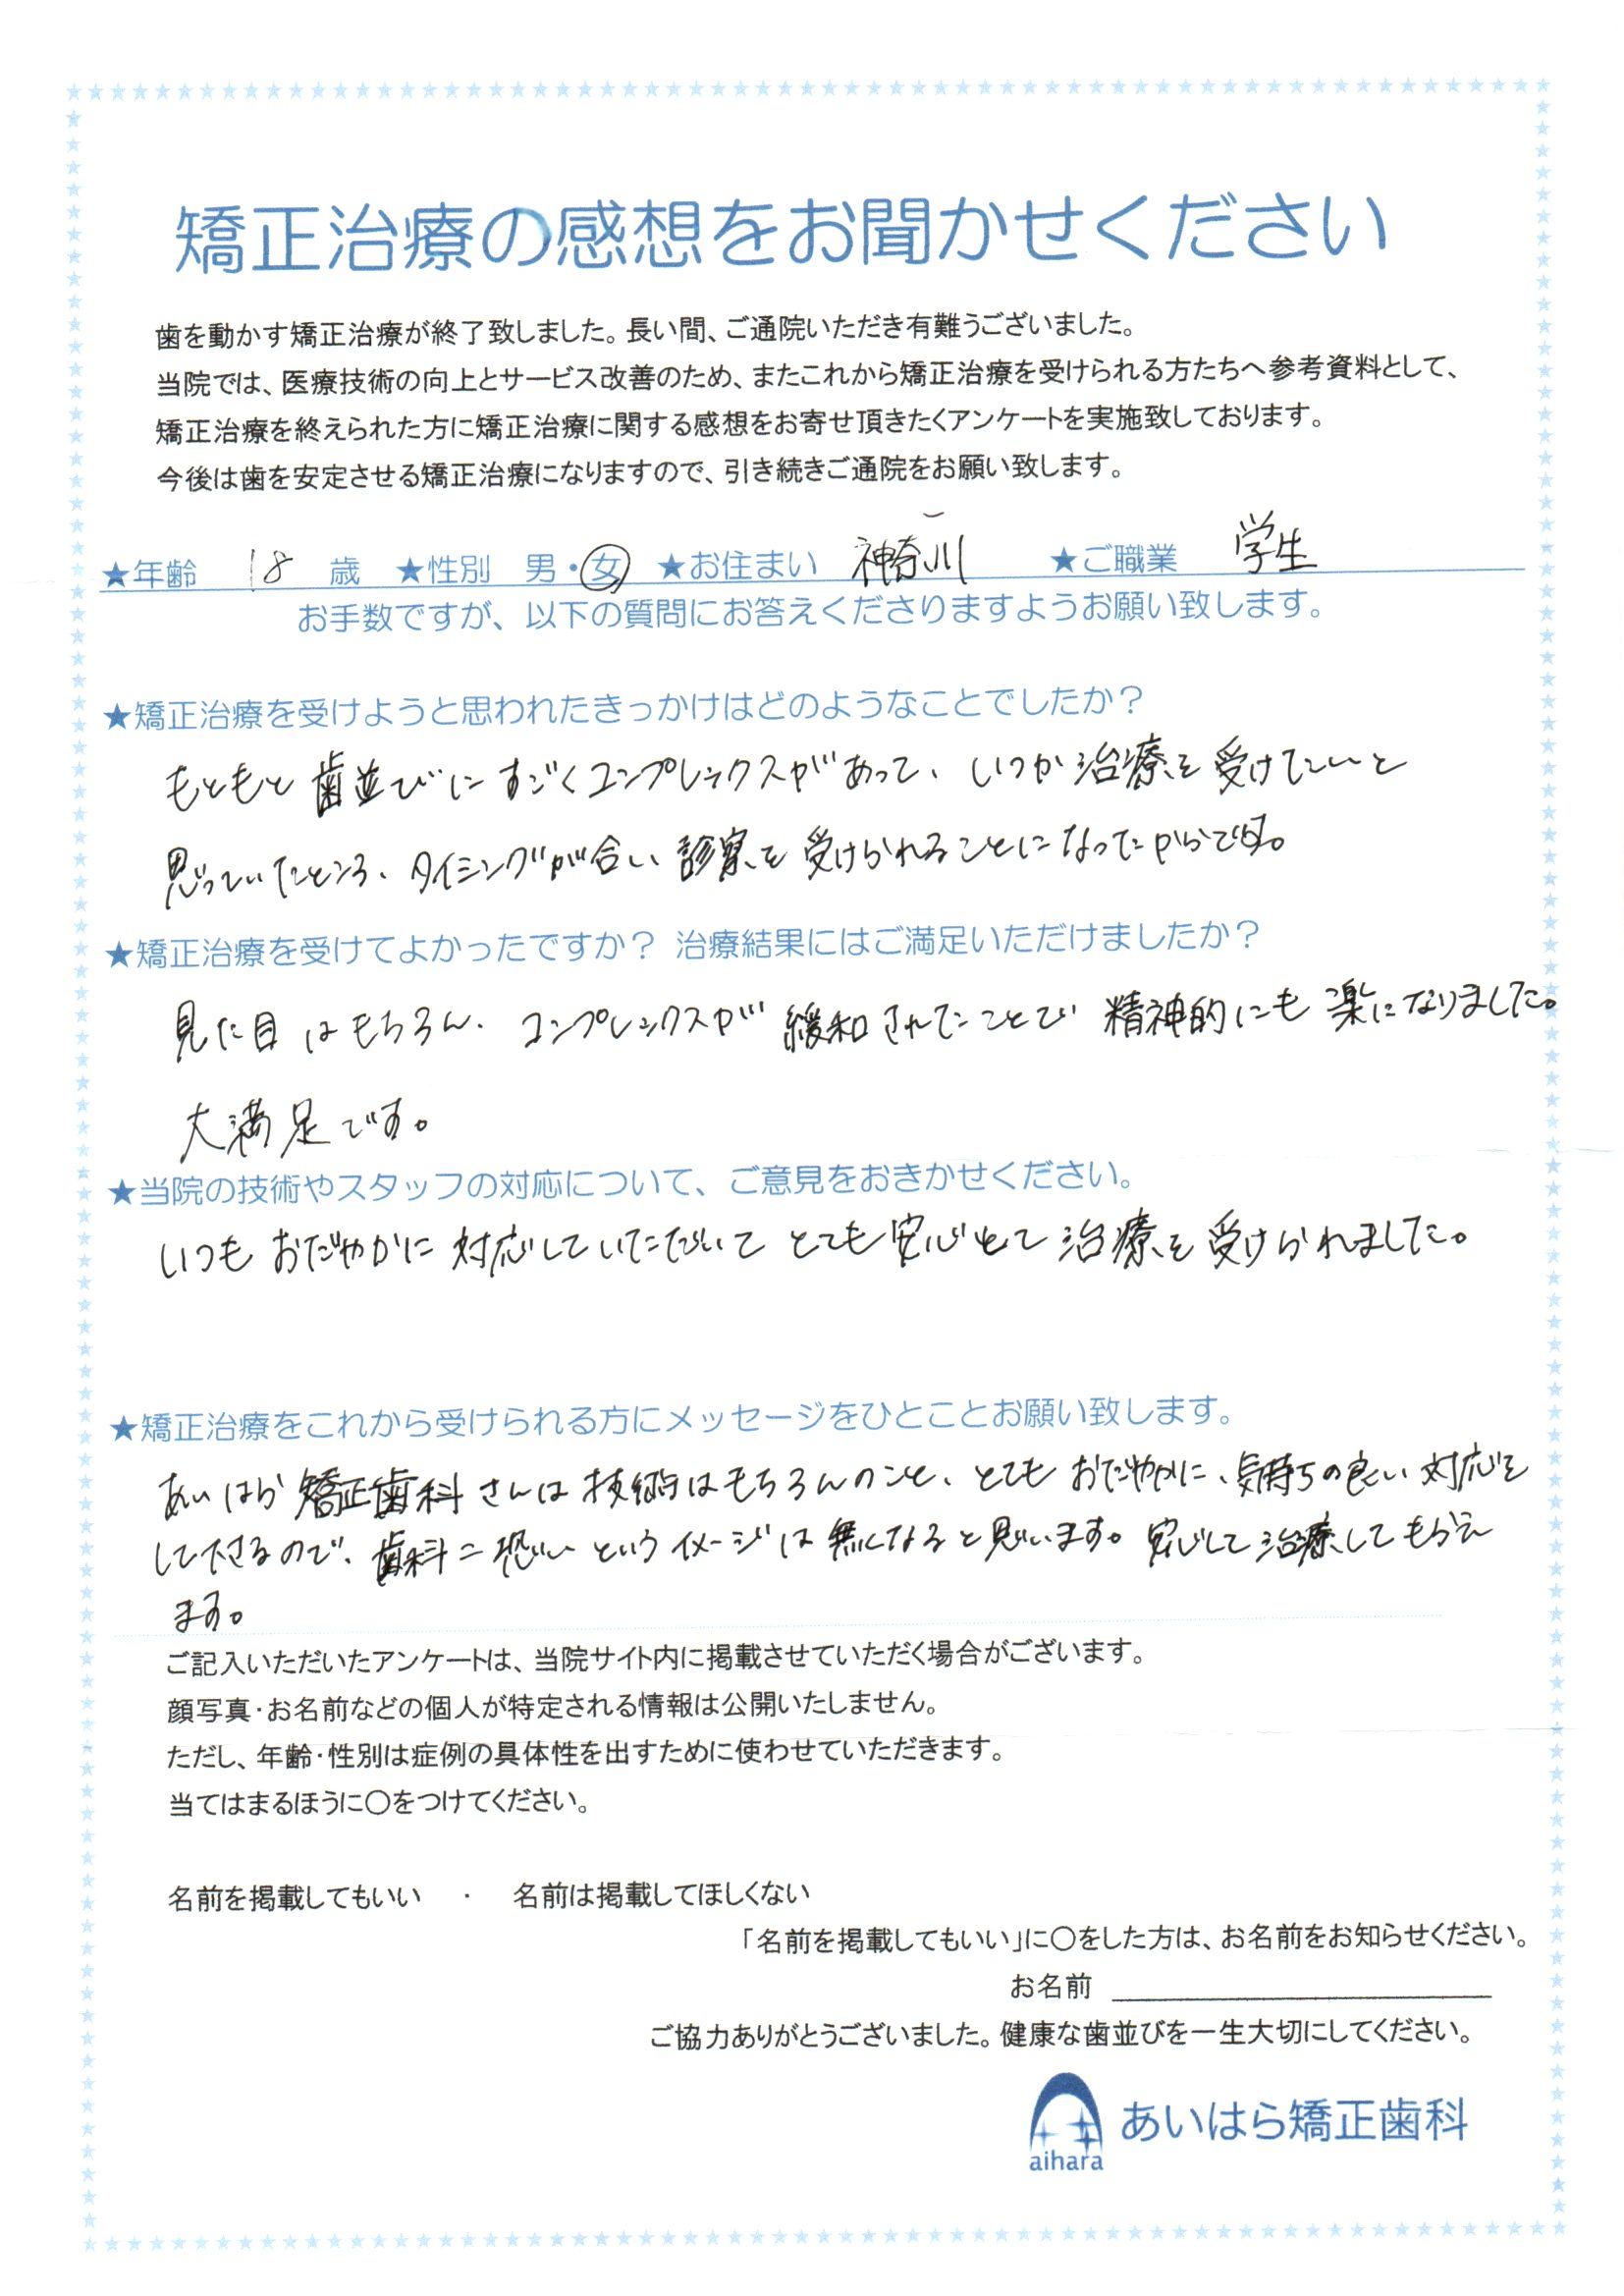 矯正治療の感想をお聞かせください
歯を動かす矯正治療が終了致しました。長い間、ご通院いただき有難うございました。
当院では、医療技術の向上とサービス改善のため、またこれから矯正治療を受けられる方たちへ参考資料として、
矯正治療を終えられた方に矯正治療に関する感想をお寄せ頂きたくアンケートを実施致しております。
今後は歯を安定させる矯正治療になりますので、引き続きご通院をお願い致します。
★年齢 18 歳 ★性別 男・女 ★お住まい 神奈川 ★ご職業 学生
お手数ですが、以下の質問にお答えくださりますようお願い致します。
★矯正治療を受けようと思われたきっかけはどのようなことでしたか？
もともと歯並びにすごくコンプレックスがあって、いつか治療を受けたいと
思っていたところ、タイミングが合い診察を受けられることになったからです。
★矯正治療を受けてよかったですか？ 治療結果にはご満足いただけましたか？
見た目はもちろん、コンプレックスが緩和されたことで精神的にも楽になりました。
大満足です。
★当院の技術やスタッフの対応について、ご意見をおきかせください。
いつもおだやかに対応していただいてとても安心して治療を受けられました。
★矯正治療をこれから受けられる方にメッセージをひとことお願い致します。
あいはら矯正歯科さんは技術はもちろんのこと、とてもおだやかに、気持ちの良い対応を
して下さるので、歯科＝恐いというイメージは無くなると思います。安心して治療してもらえ
ます。
ご記入いただいたアンケートは、当院サイト内に掲載させていただく場合がございます。
顔写真・お名前などの個人が特定される情報は公開いたしません。
ただし、年齢・性別は症例の具体性を出すために使わせていただきます。
当てはまるほうに〇をつけてください。
名前を掲載してもいい ・ 名前は掲載してほしくない
「名前を掲載してもいい」に〇をした方は、お名前をお知らせください。
お名前
ご協力ありがとうございました。健康な歯並びを一生大切にしてください。
aihara あいはら矯正歯科